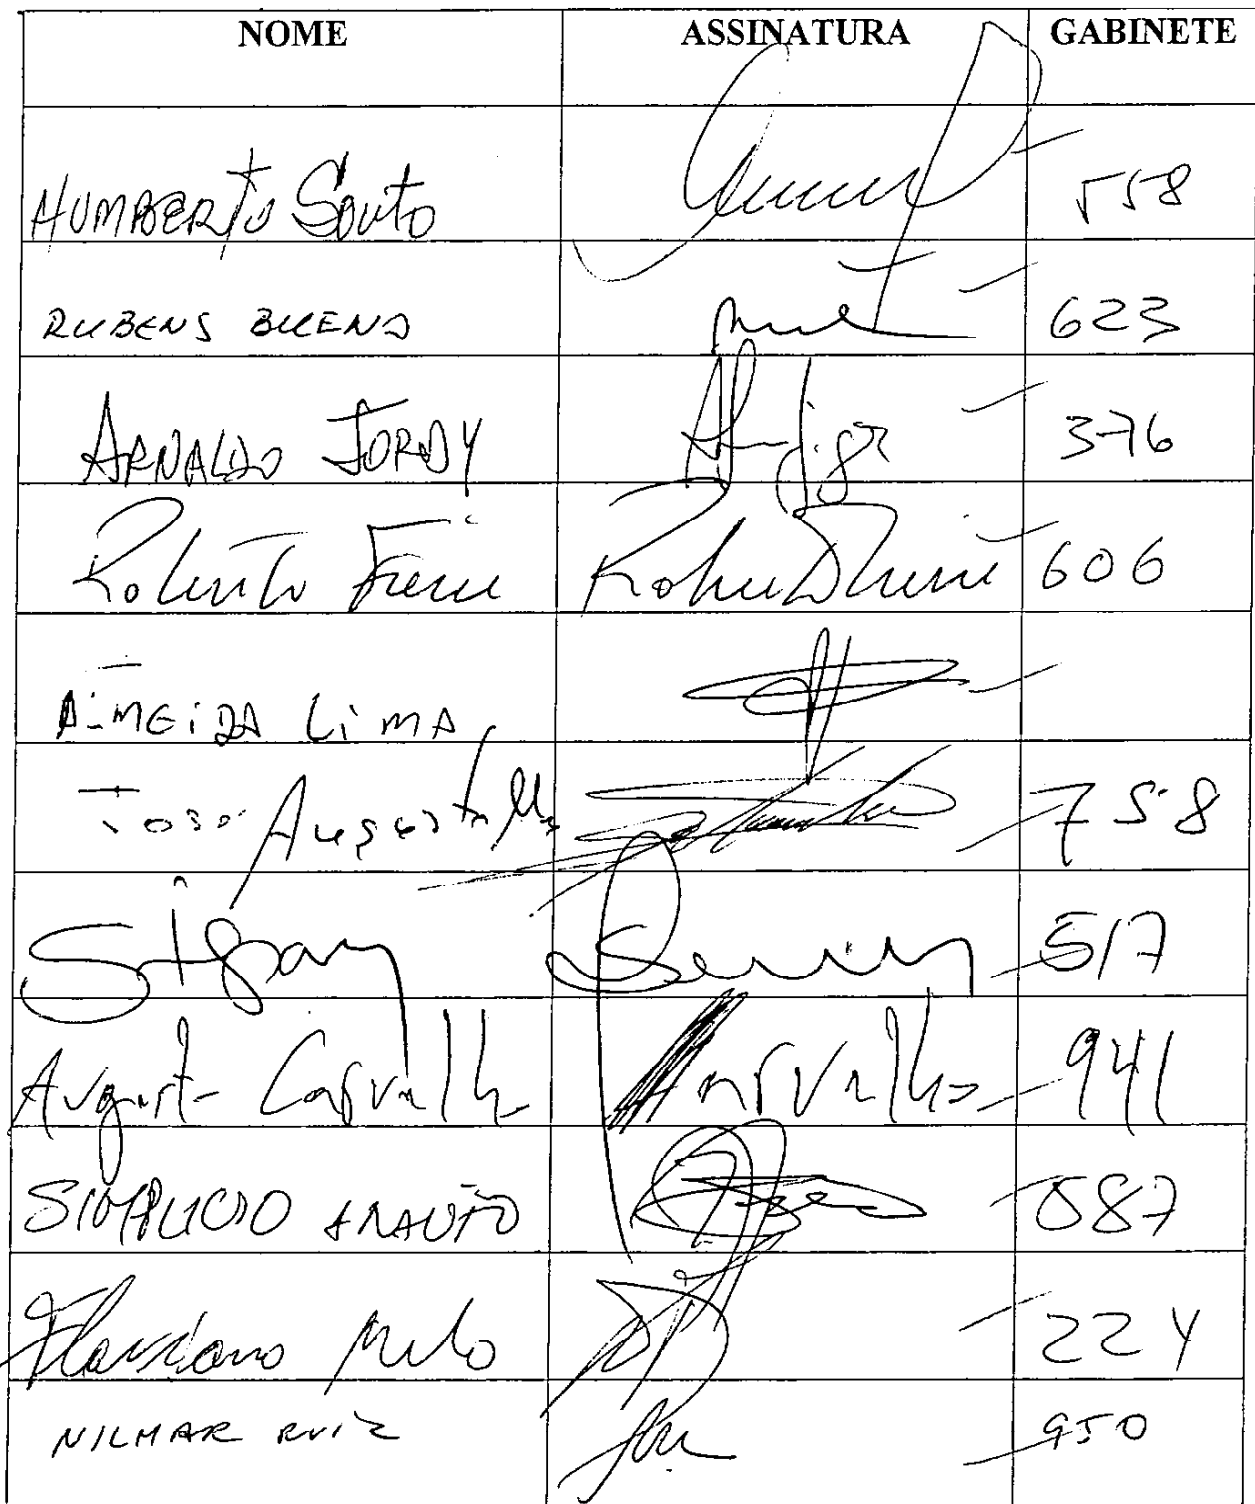 NOME ASSINATURA GABINETE
HUMBERTO Souto 558
RUBENS BUENO 623
ARNALDO JORDY 376
Roberto Freire Roberto Freire 606
ALMEIDA LIMA
José Augusto 758
517
Augusto Carvalho Carvalho 941
SIMPLICIO ARAUJO 587
Flaviano Melo 224
NILMAR RUIZ 950